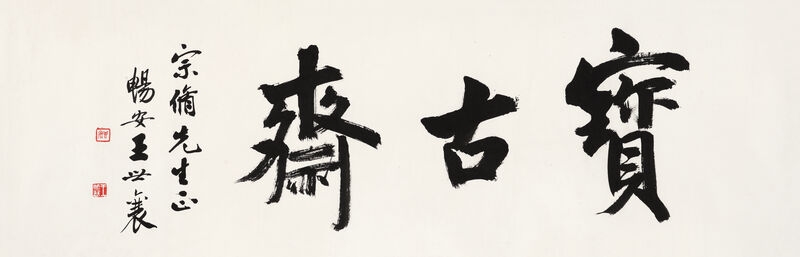 寶古齋
宗脩先生正
暢安王世襄